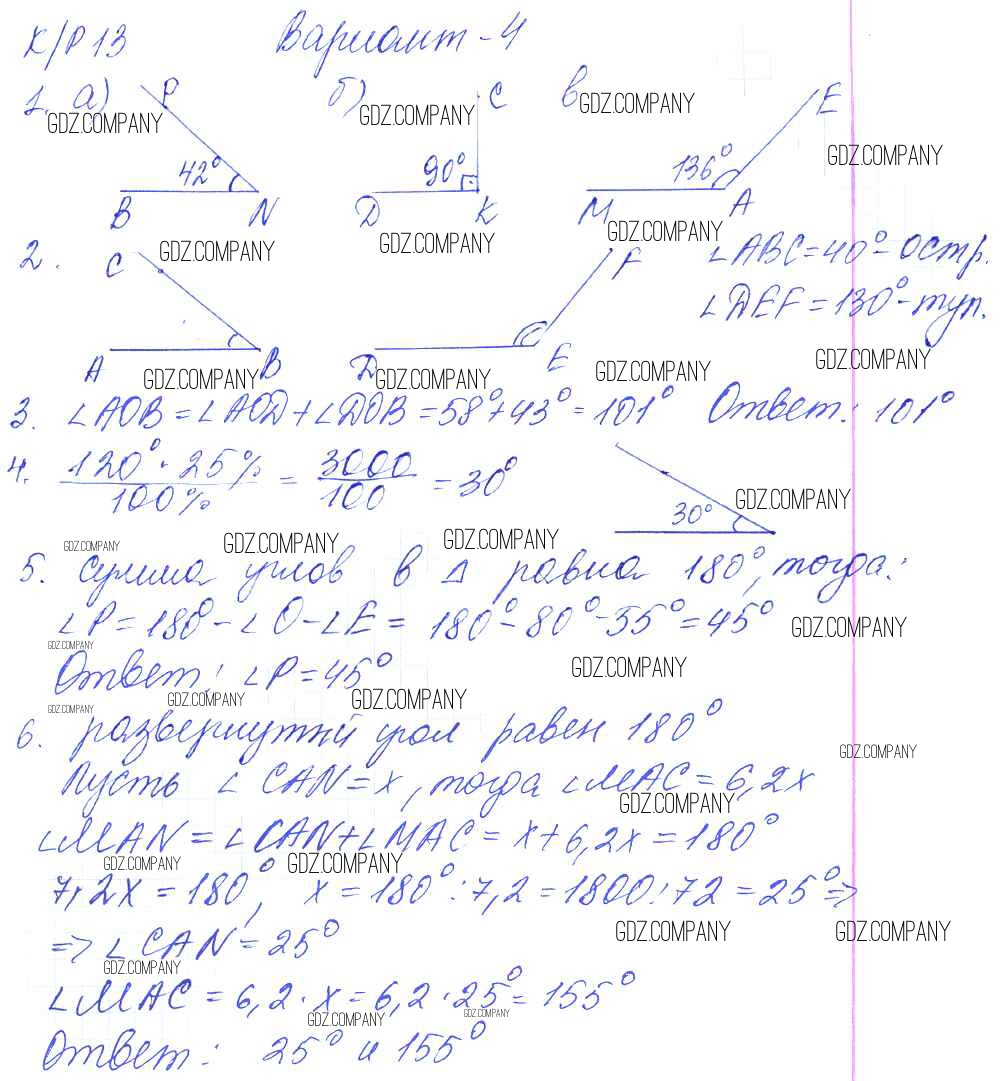 К/Р 13 Вариант - 4
1. а) P б) C в E
GDZ.COMPANY GDZ.COMPANY GDZ.COMPANY
GDZ.COMPANY
42° 90° 136°
B N D K M A
GDZ.COMPANY GDZ.COMPANY GDZ.COMPANY
2. C F ∠ABC = 40° - остр.
∠DEF = 130° - туп.
A B D E
GDZ.COMPANY GDZ.COMPANY GDZ.COMPANY GDZ.COMPANY
3. ∠AOB = ∠AOD + ∠DOB = 58° + 43° = 101° Ответ: 101°
4. 120° · 25% / 100% = 3000 / 100 = 30°
30° GDZ.COMPANY
GDZ.COMPANY GDZ.COMPANY GDZ.COMPANY
5. сумма углов в Δ равна 180°, тогда:
∠P = 180° - ∠O - ∠E = 180° - 80° - 55° = 45°
GDZ.COMPANY GDZ.COMPANY
Ответ: ∠P = 45° GDZ.COMPANY
GDZ.COMPANY GDZ.COMPANY GDZ.COMPANY
6. развернутый угол равен 180°
GDZ.COMPANY
Пусть ∠CAN = x, тогда ∠MAC = 6,2x
GDZ.COMPANY
∠MAN = ∠CAN + ∠MAC = x + 6,2x = 180°
GDZ.COMPANY GDZ.COMPANY
7,2x = 180°, x = 180° : 7,2 = 1800 : 72 = 25° =>
GDZ.COMPANY GDZ.COMPANY
=> ∠CAN = 25°
GDZ.COMPANY
∠MAC = 6,2 · x = 6,2 · 25° = 155°
GDZ.COMPANY GDZ.COMPANY
Ответ: 25° и 155°